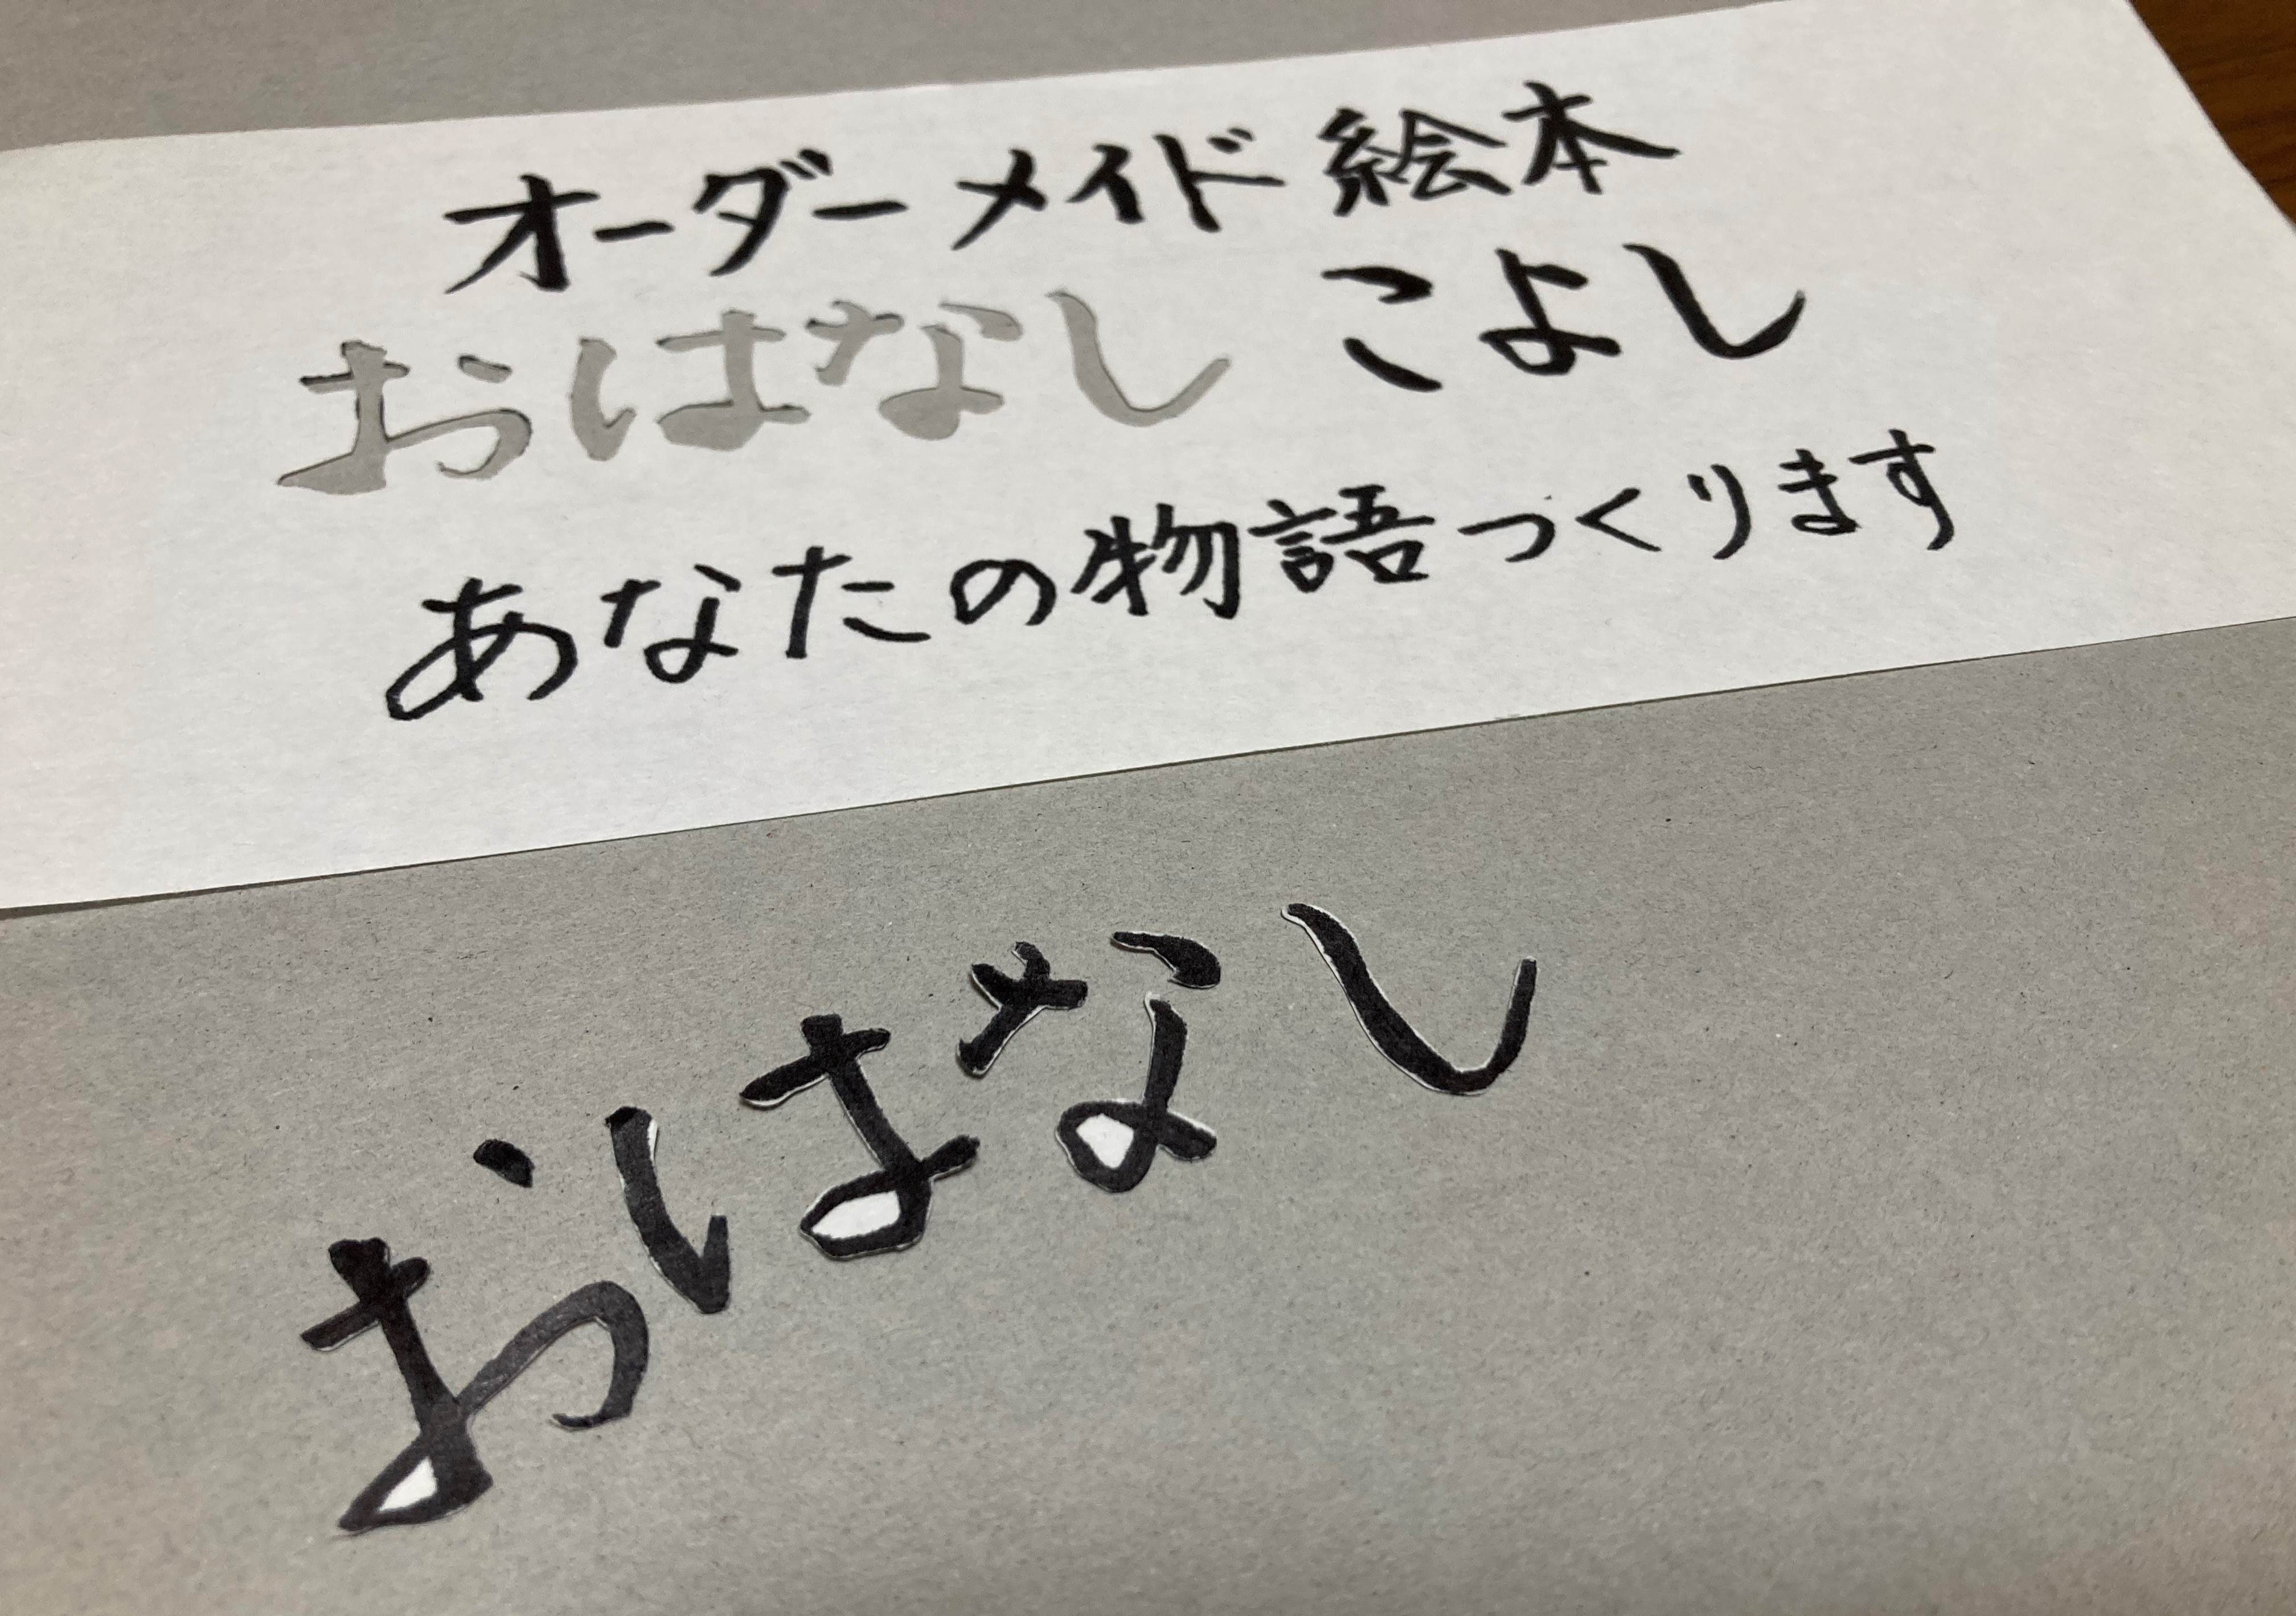 オーダーメイド絵本
おはなし こよし
あなたの物語つくります
おはなし